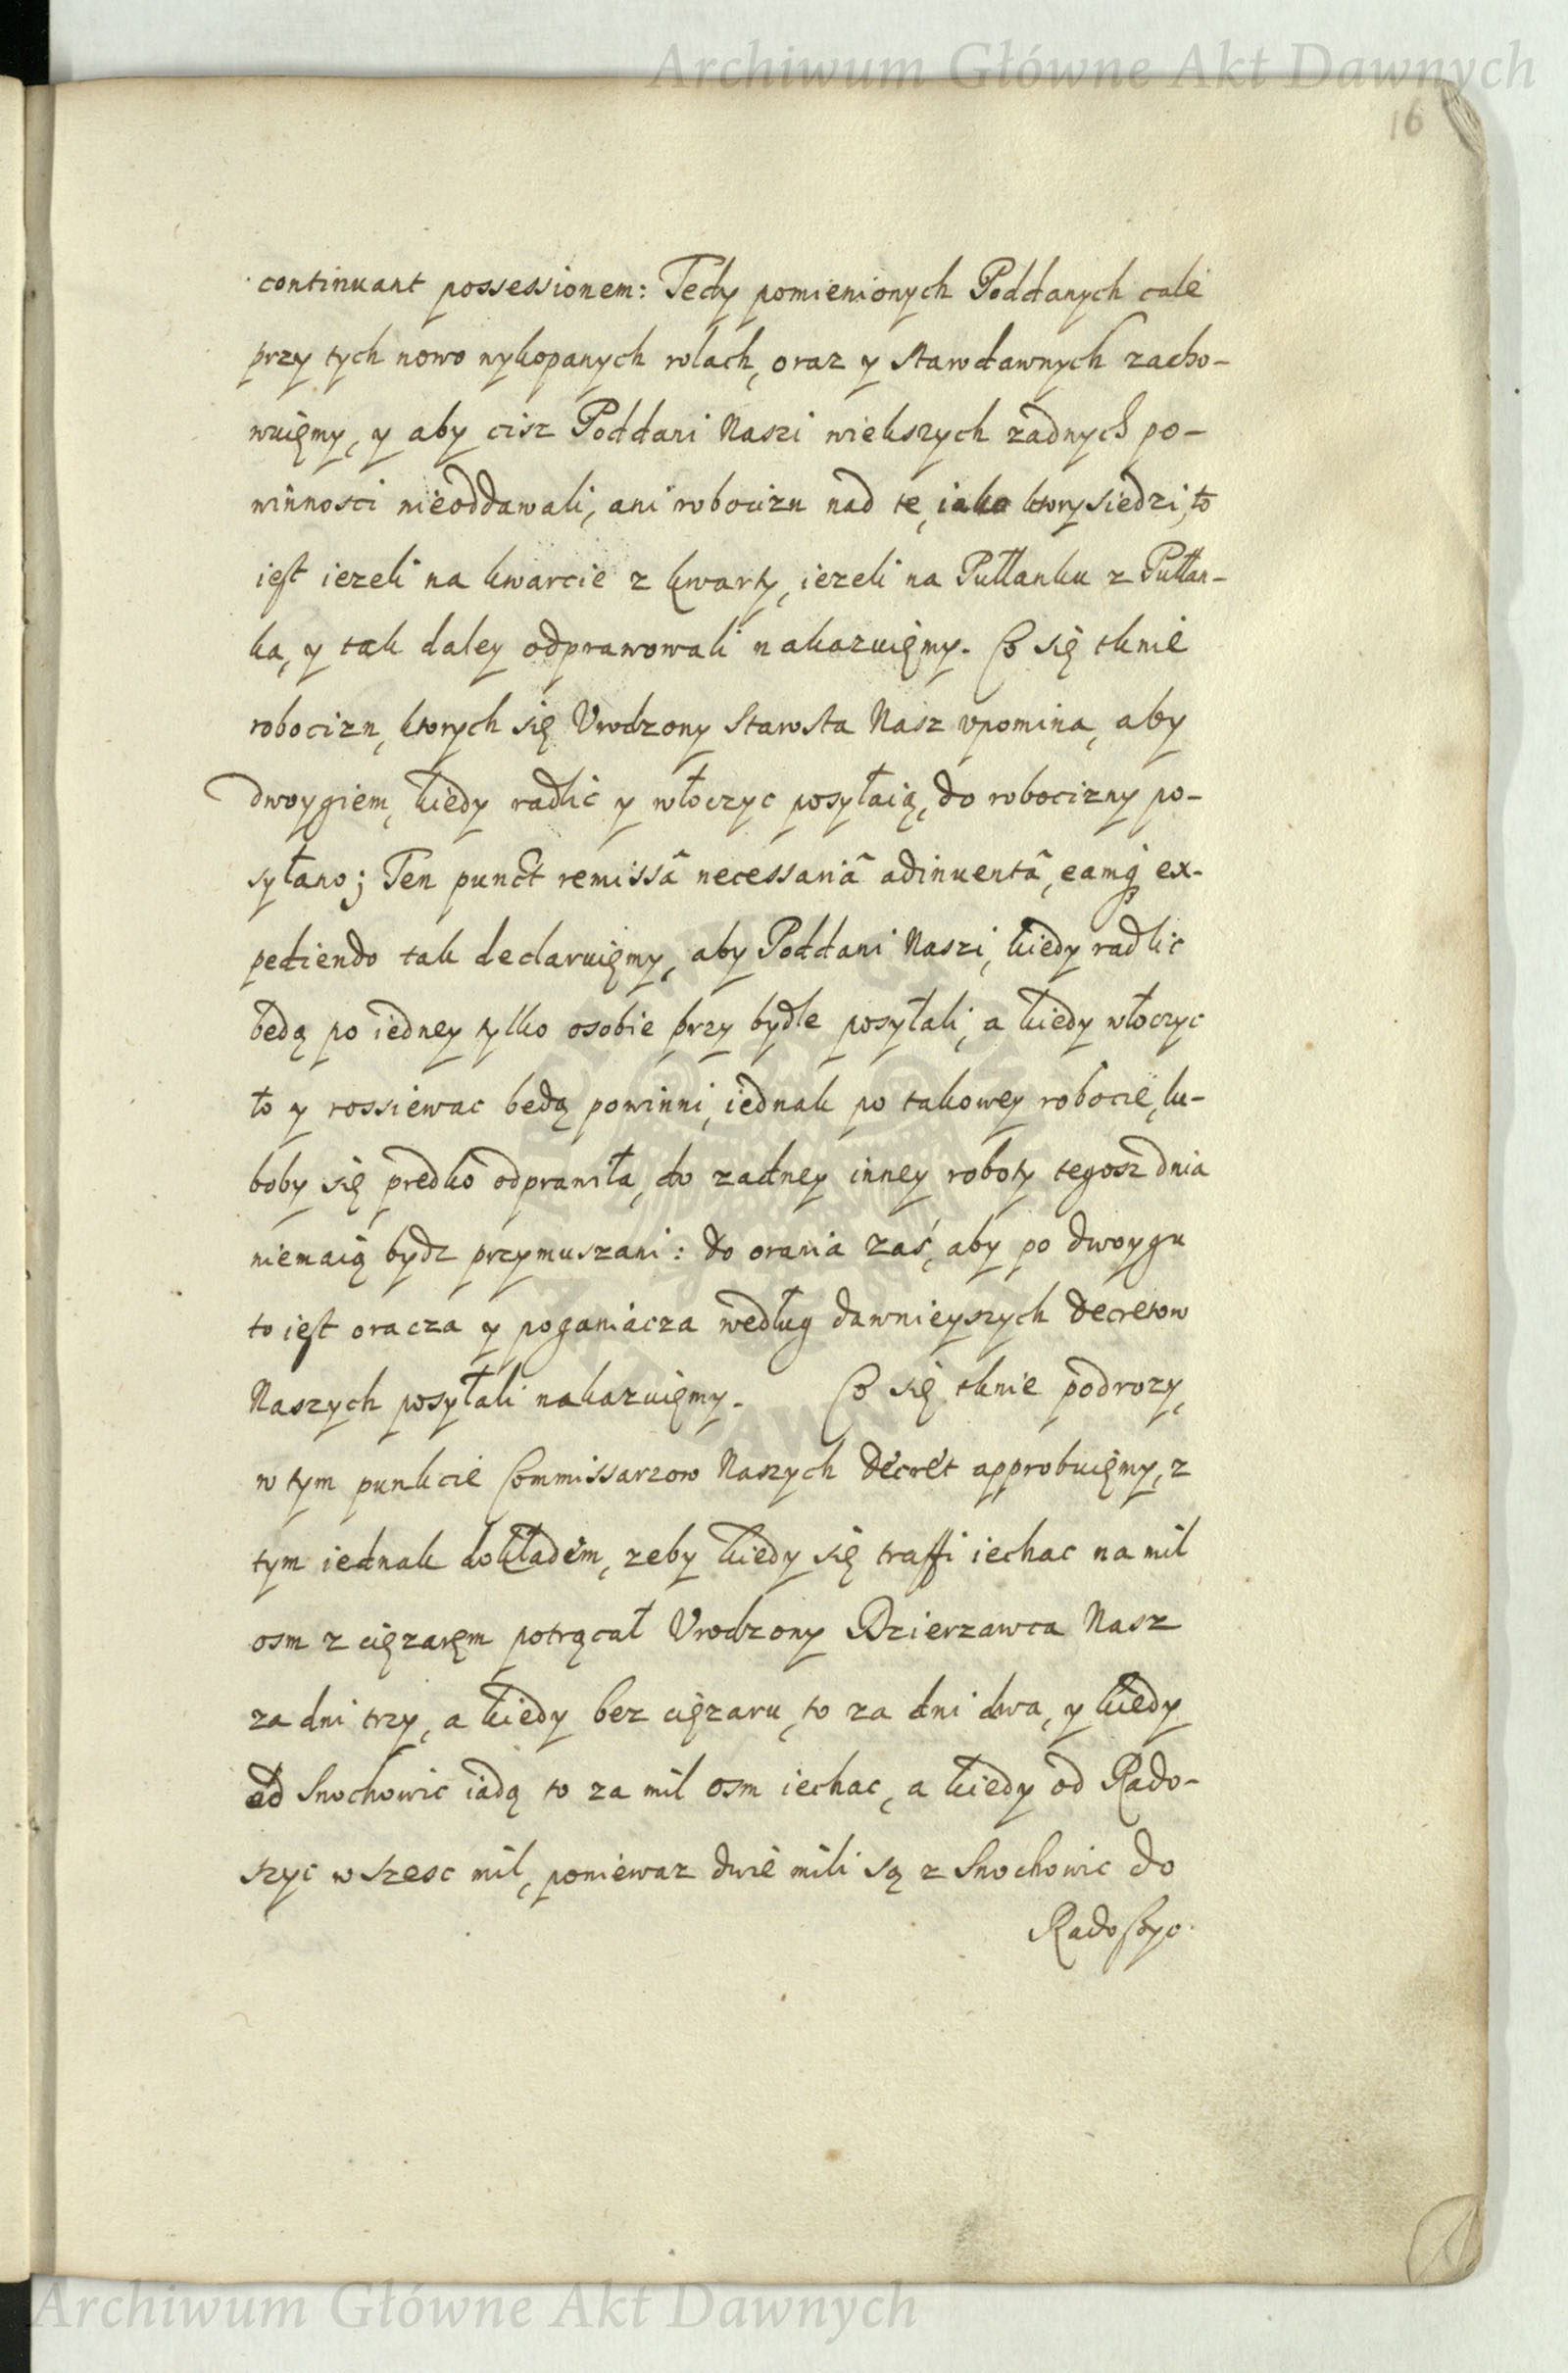 Archiwum Główne Akt Dawnych
16
continuant possessionem: Tedy pomienionych Poddanych cale
przy tych nowo wykopanych rolach, oraz y starodawnych zacho-
wuięmy, y aby cisz Poddani Naszi wiekszych zadnych po-
winnosci nieoddawali, ani robocizn nad te, iako ktory siedzi, to
iest iezeli na kwarcie z kwarty, iezeli na Pułłanku z Pułłan-
ka, y tak daley odprawowali nakazuięmy. Co się tknie
robocizn, ktorych się Vrodzony Starosta Nasz vpomina, aby
dwoygiem, kiedy radlic y włoczyc posyłaią, do robocizny po-
syłano; Ten punct remissâ necessariâ adinuentâ, eamq́ ex-
pediendo tak declaruięmy, aby Poddani Naszi, kiedy radlic
bedą po iedney tylko osobie przy bydle posyłali, a kiedy włoczyc
to y rossiewac bedą powinni, iednak po takowey robocie, lu-
boby się predko odprawiła, do zadney inney roboty tegosz dnia
niemaią bydz przymuszani: do orania zaś, aby po dwoygu
to iest oracza y poganiacza według dawnieyszych decretow
Naszych posyłali nakazuięmy. Co się tknie podrozy,
w tym punkcie Commissarzow Naszych decret approbuięmy, z
tym iednak dokładem, zeby kiedy się traffi iechac na mil
osm z ciężaręm potrącał Vrodzony Dzierzawca Nasz
za dni trzy, a kiedy bez ciężaru, to za dni dwa, y kiedy
od Snochowic iadą to za mil osm iechac, a kiedy od Rado-
szyc w szesc mil, poniewaz dwie mili są z Snochowic do
Radoszyc.
Archiwum Główne Akt Dawnych